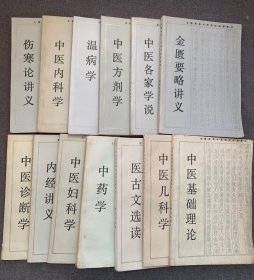 伤寒论讲义
中医内科学
温病学
中医方剂学
中医各家学说
金匮要略讲义
中医诊断学
内经讲义
中医妇科学
中药学
医古文选读
中医儿科学
中医基础理论